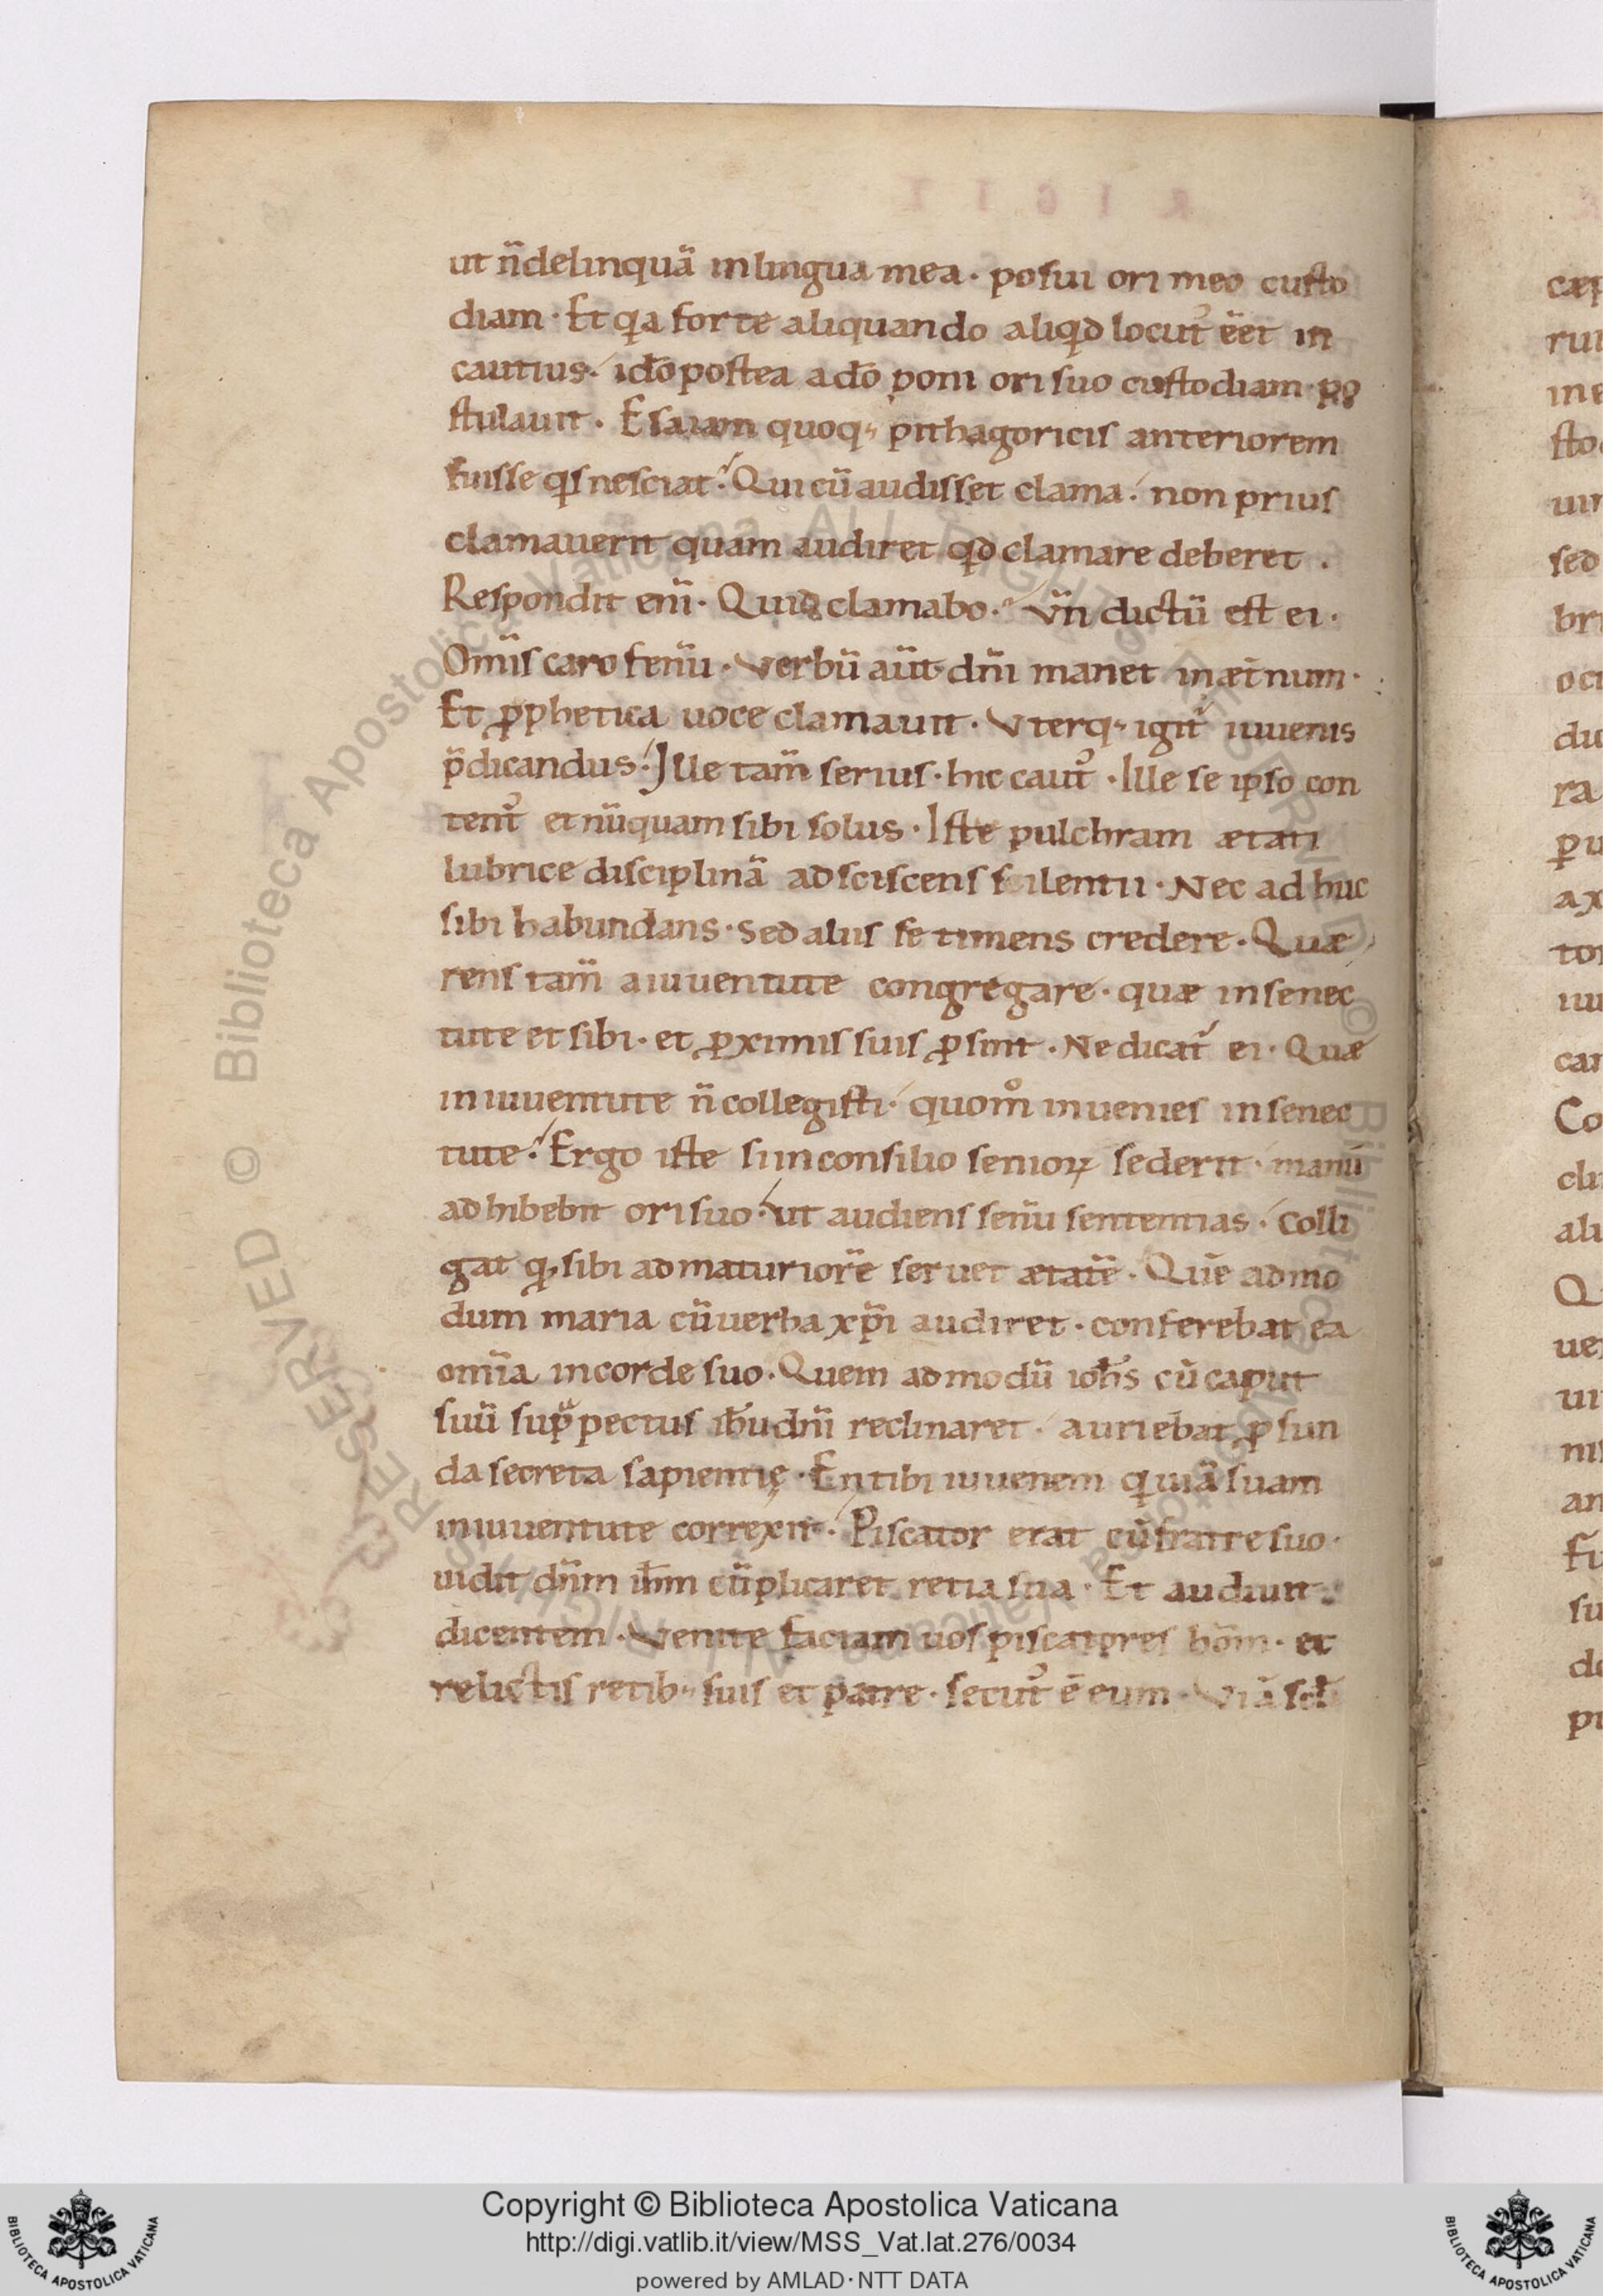 ut n̄ delinquā in lingua mea · posui ori meo custo
diam · Et qa forte aliquando aliqd locut᾽ eēt in
cautius · ido postea a do poni ori suo custodiam · po
stulauit · Esaiam quoq; pithagoricis anteriorem
fuisse qs nesciat? Qui cū audisset clama · non prius
clamauerit quam audiret qd clamare deberet ·
Respondit enī · Quid clamabo · Vn̄ dictū est ei ·
Omīs caro fenū · Verbū aūt dn̄i manet in æt̄num ·
Et ꝓphetica uoce clamauit · Vterq; igit᾽ iuuenis
p̄dicandus · Ille tam̄ serius · hic caut᾽ · Ille se ipso con
tent᾽ et nūquam sibi solus · Iste pulchram ætati
lubrice disciplinā adsciscens silentii · Nec ad huc
sibi habundans · Sed aliis se timens credere · Quæ
rens tam̄ a iuuentute congregare · quæ in senec
tute et sibi · et ꝓximis suis ꝓsint · Ne dicat᾽ ei · Quæ
in iuuentute n̄ collegisti · quom̊ inuenies in senec
tute? Ergo iste si in consilio senioꝝ sederit · manū
adhibebit ori suo · ut audiens senū sententias · Colli
gat q; sibi ad maturiorē seruet ætatē · Quē admo
dum maria cū uerba xp̄i audiret · conferebat ea
omīa in corde suo · Quem admodū ioh̄s cū caput
suū sup̄ pectus ih̄u dn̄i reclinaret · auriebat ꝓfun
da secreta sapientię · En tibi iuuenem q uiā suam
in iuuentute correxit · Piscator erat cū fratre suo ·
uidit dn̄m ih̄m cū plicaret retia sua · Et audiuit
dicentem · Venite faciam uos piscatores hom̄ · et
relictis retib; suis et patre · secut᾽ ē eum · Viā scli
Copyright © Biblioteca Apostolica Vaticana
http://digi.vatlib.it/view/MSS_Vat.lat.276/0034
powered by AMLAD·NTT DATA
BIBLIOTECA APOSTOLICA VATICANA
BIBLIOTECA APOSTOLICA VATICANA
© Biblioteca Apostolica Vaticana ALL RIGHTS RESERVED
© Biblioteca Apostolica Vaticana ALL RIGHTS RESERVED